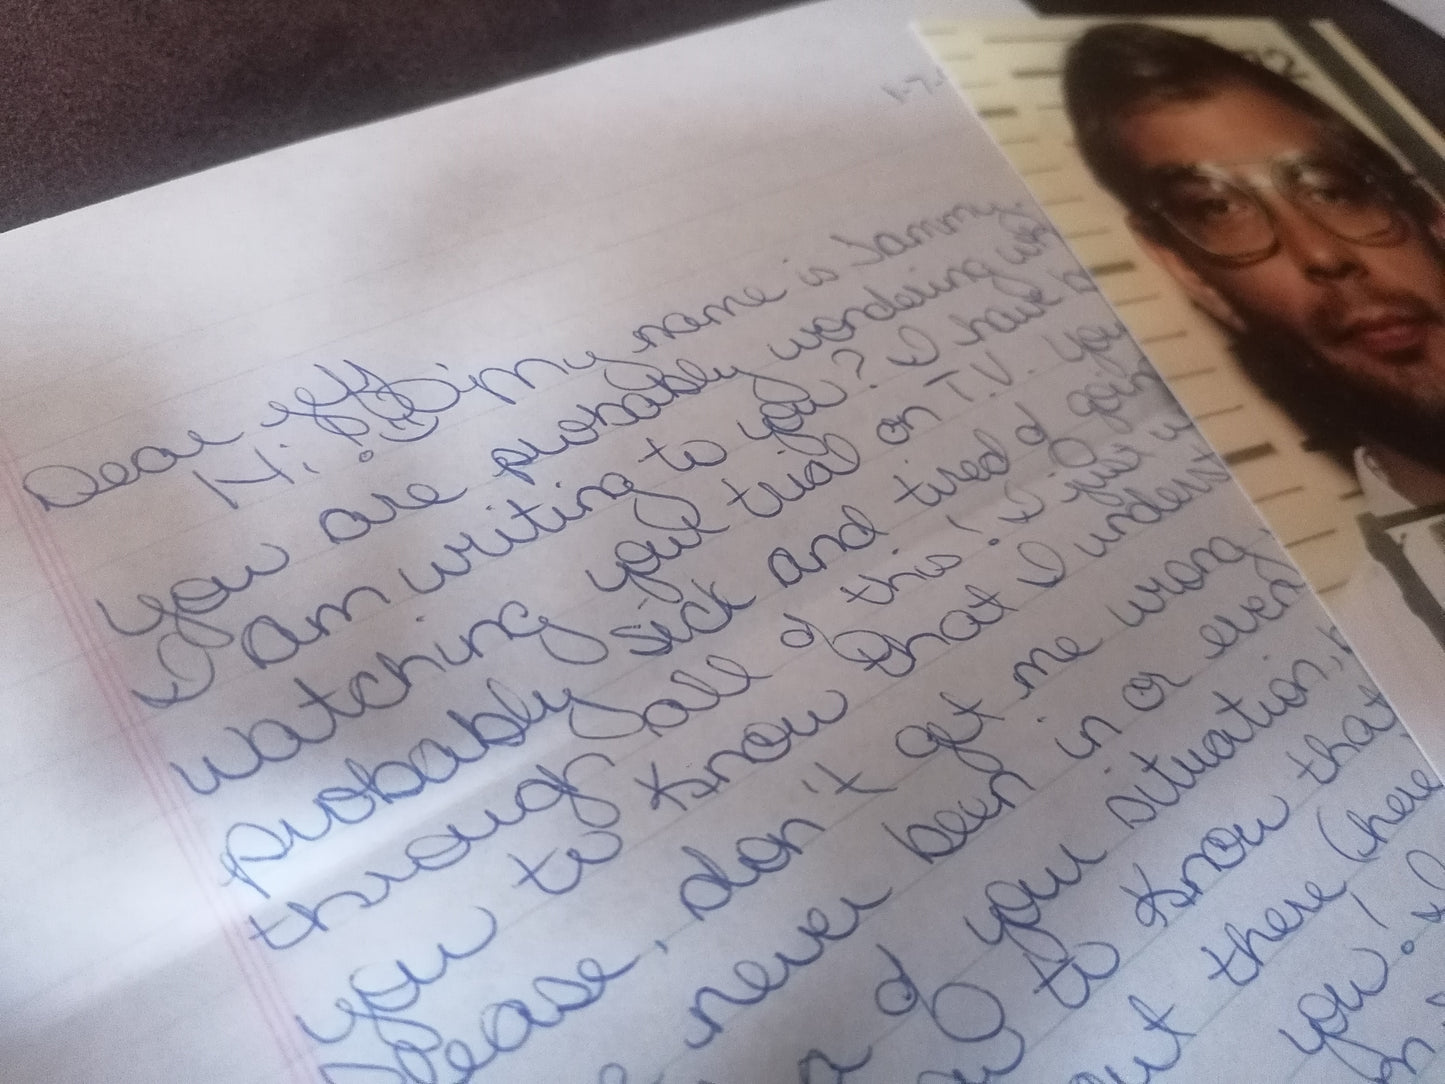 Dear Jeff,
Hi! my name is Tammy.
You are probably wondering why
I am writing to you? I have b
watching your trial on T.V. You
probably sick and tired of goin
through all of this! I just w
you to know that I underst
Please, don't get me wrong
never been in or even
of your situation,
to know that
out there (here
you!